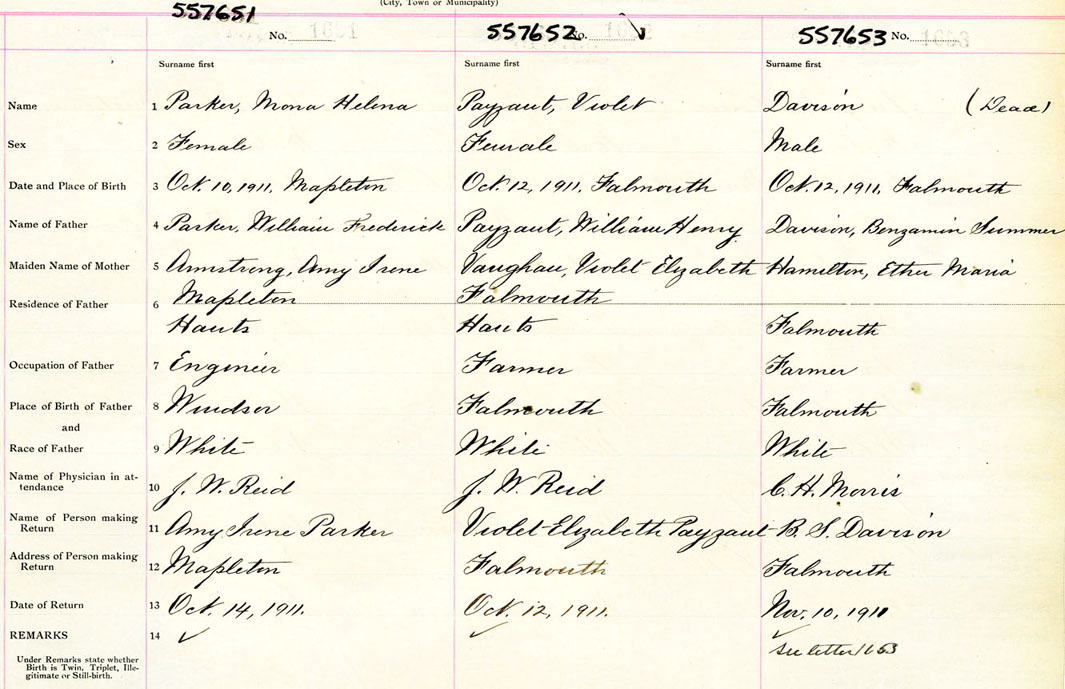 (City, Town or Municipality)
557651 No. 1651 557652 No. 1652 557653 No. 1653
Surname first Surname first Surname first
Name 1 Parker, Mona Helena Payzant, Violet Davison (Dead)
Sex 2 Female Female Male
Date and Place of Birth 3 Oct. 10, 1911, Mapleton Oct. 12, 1911. Falmouth Oct. 12, 1911, Falmouth
Name of Father 4 Parker, William Frederick Payzant, William Henry Davison, Benjamin Summer
Maiden Name of Mother 5 Armstrong, Amy Irene Vaughan, Violet Elizabeth Hamilton, Maria
Residence of Father 6 Mapleton Falmouth
Hants Hants Falmouth
Occupation of Father 7 Engineer Farmer Farmer
Place of Birth of Father 8 Windsor Falmouth Falmouth
and
Race of Father 9 White White White
Name of Physician in at-
tendance 10 J. W. Reid J. W. Reid C. H. Morris
Name of Person making
Return 11 Amy Irene Parker Violet Elizabeth Payzant B. S. Davison
Address of Person making
Return 12 Mapleton Falmouth Falmouth
Date of Return 13 Oct. 14, 1911. Oct. 12, 1911. Nov. 10, 1911
REMARKS 14 ✓ ✓ ✓
see letter 1653
Under Remarks state whether
Birth is Twin, Triplet, Ille-
gitimate or Still-birth.